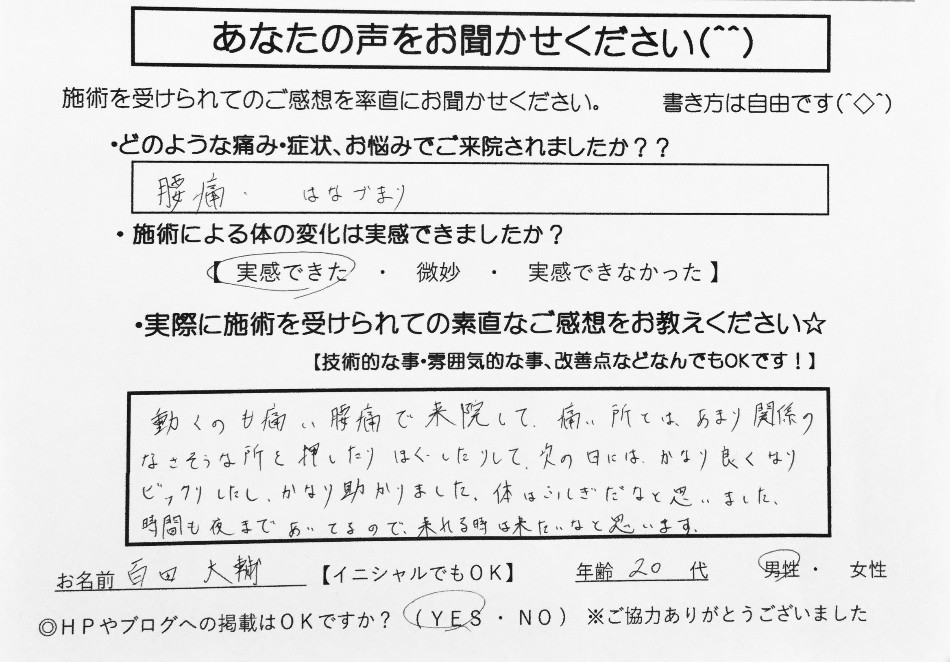 あなたの声をお聞かせください(^^)
施術を受けられてのご感想を率直にお聞かせください。 書き方は自由です(^◇^)
・どのような痛み・症状、お悩みでご来院されましたか？？
腰痛・ はなづまり
・施術による体の変化は実感できましたか？
【 実感できた ・ 微妙 ・ 実感できなかった 】
・実際に施術を受けられての素直なご感想をお教えください☆
【技術的な事・雰囲気的な事、改善点などなんでもOKです！】
動くのも痛い腰痛で来院して、痛い所とは、あまり関係の
なさそうな所を押したりほぐしたりして、次の日には、かなり良くなり
ビックリしたし、かなり助かりました、体はふしぎだなと思いました、
時間も夜まであいてるので、来れる時は来たいなと思います。
お名前 百田 大輔 【イニシャルでもOK】 年齢 20 代 男性・ 女性
◎HPやブログへの掲載はOKですか？ （YES ・ NO） ※ご協力ありがとうございました